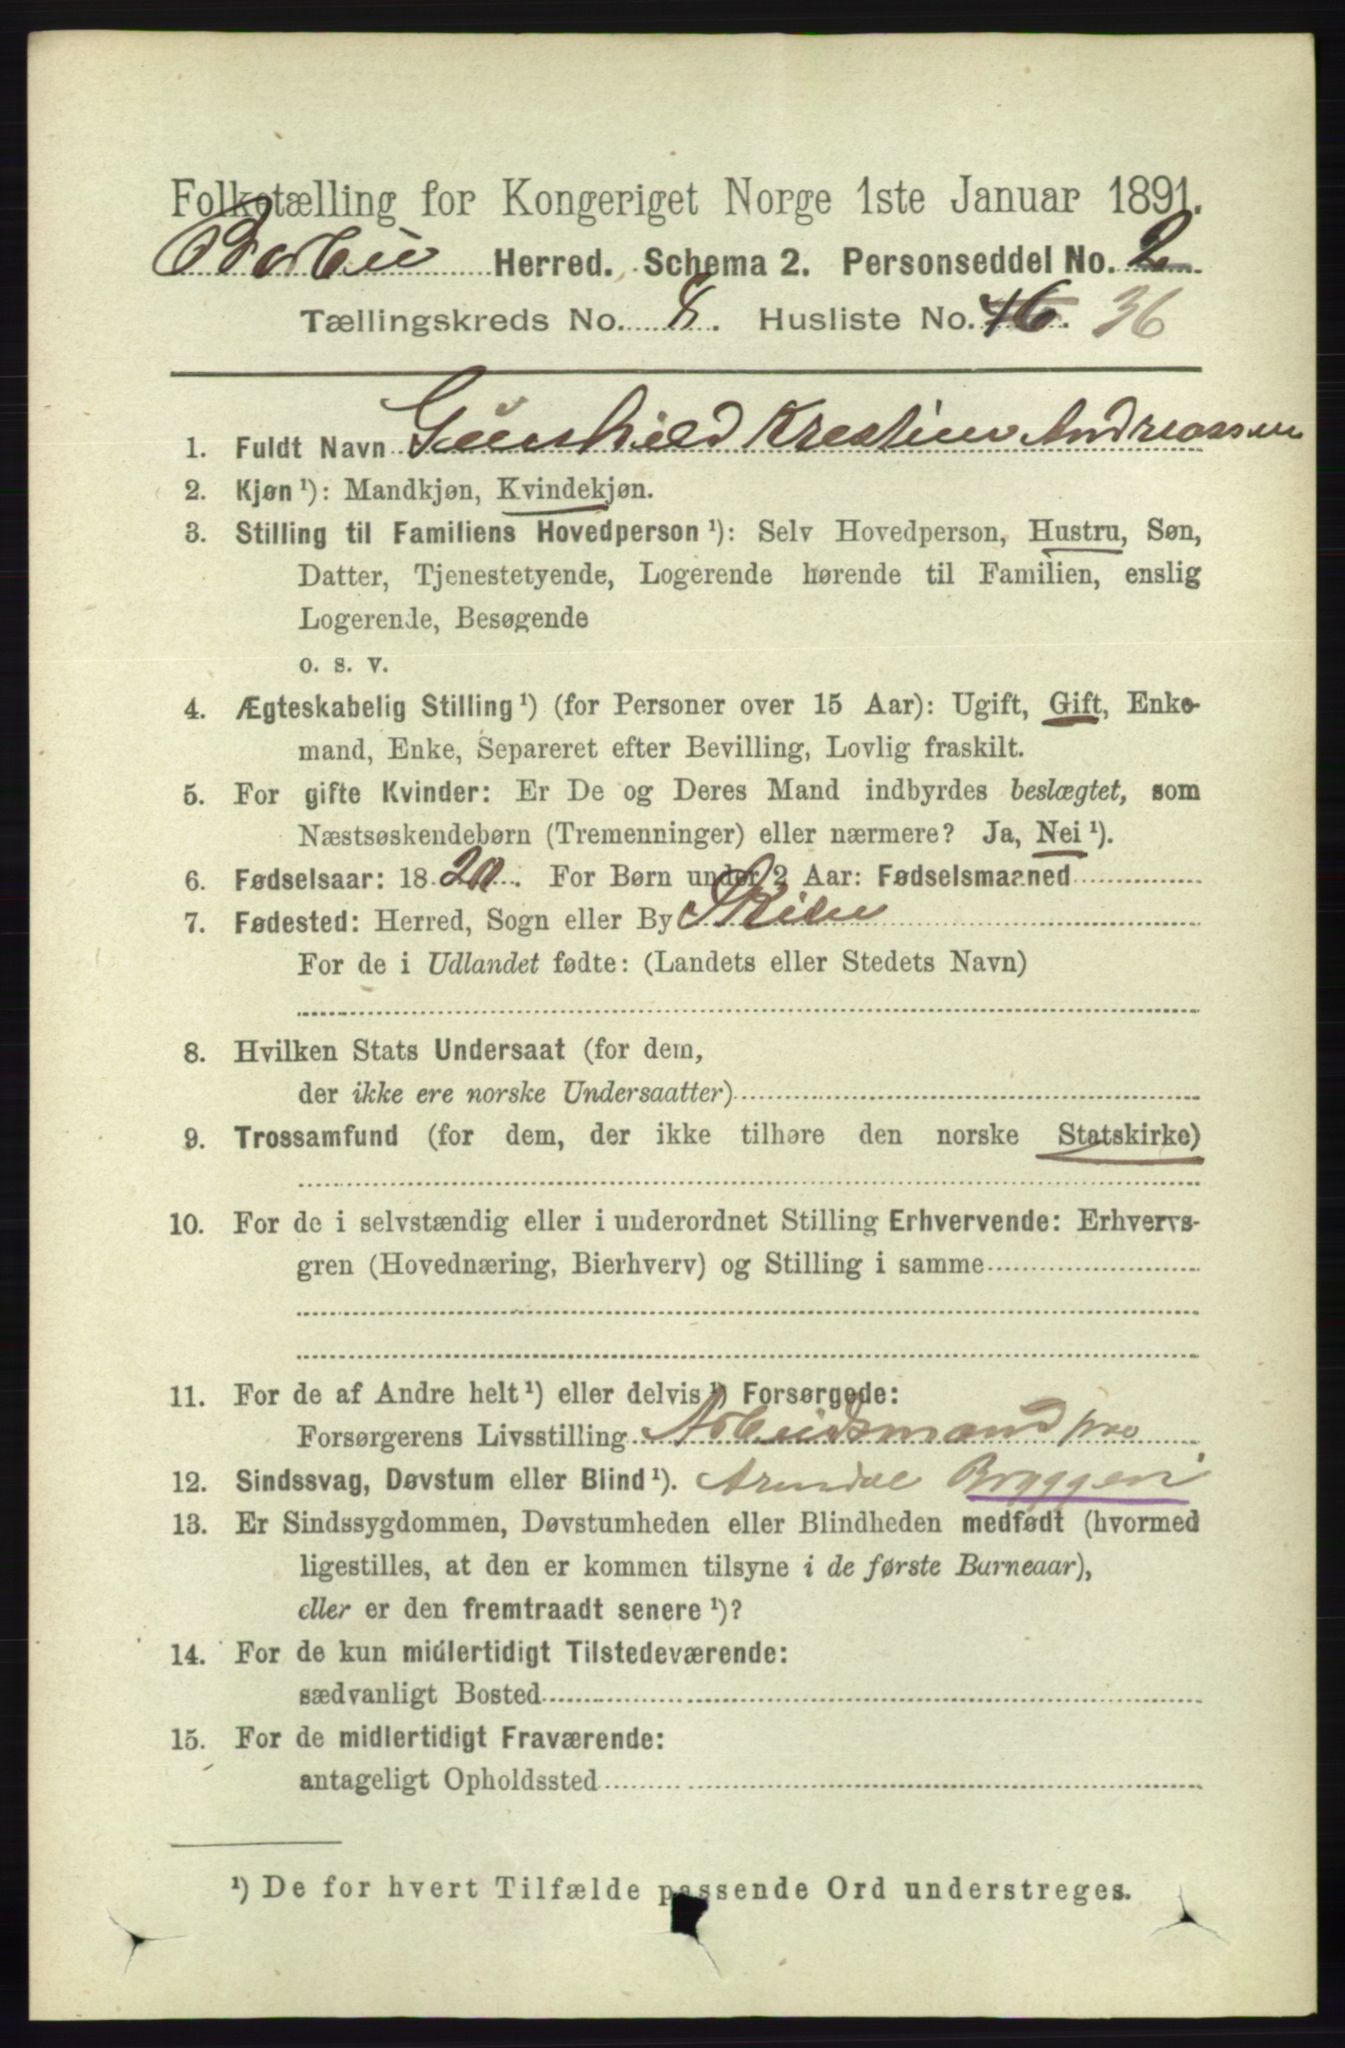 Folketælling for Kongeriget Norge 1ste Januar 1891.
Barbu Herred. Schema 2. Personseddel No. 2
Tællingskreds No. 8. Husliste No. 46. 36
1. Fuldt Navn Gunhild Krestine Andreassen
2. Kjøn ¹): Mandkjøn, Kvindekjøn.
3. Stilling til Familiens Hovedperson ¹): Selv Hovedperson, Hustru, Søn,
Datter, Tjenestetyende, Logerende hørende til Familien, enslig
Logerende, Besøgende
o. s. v.
4. Ægteskabelig Stilling ¹) (for Personer over 15 Aar): Ugift, Gift, Enke-
mand, Enke, Separeret efter Bevilling, Lovlig fraskilt.
5. For gifte Kvinder: Er De og Deres Mand indbyrdes beslægtet, som
Næstsøskendebørn (Tremenninger) eller nærmere? Ja, Nei ¹).
6. Fødselsaar: 1820. For Børn under 2 Aar: Fødselsmaaned
7. Fødested: Herred, Sogn eller By Skien
For de i Udlandet fødte: (Landets eller Stedets Navn)
8. Hvilken Stats Undersaat (for dem,
der ikke ere norske Undersaatter)
9. Trossamfund (for dem, der ikke tilhøre den norske Statskirke)
10. For de i selvstændig eller i underordnet Stilling Erhvervende: Erhvervs-
gren (Hovednæring, Bierhverv) og Stilling i samme
11. For de af Andre helt ¹) eller delvis ¹) Forsørgede:
Forsørgerens Livsstilling Arbeidsmand paa
12. Sindssvag, Døvstum eller Blind ¹). Arendal Bryggeri
13. Er Sindssygdommen, Døvstumheden eller Blindheden medfødt (hvormed
ligestilles, at den er kommen tilsyne i de første Barneaar),
eller er den fremtraadt senere ¹)?
14. For de kun midlertidigt Tilstedeværende:
sædvanligt Bosted
15. For de midlertidigt Fraværende:
antageligt Opholdssted
¹) De for hvert Tilfælde passende Ord understreges.